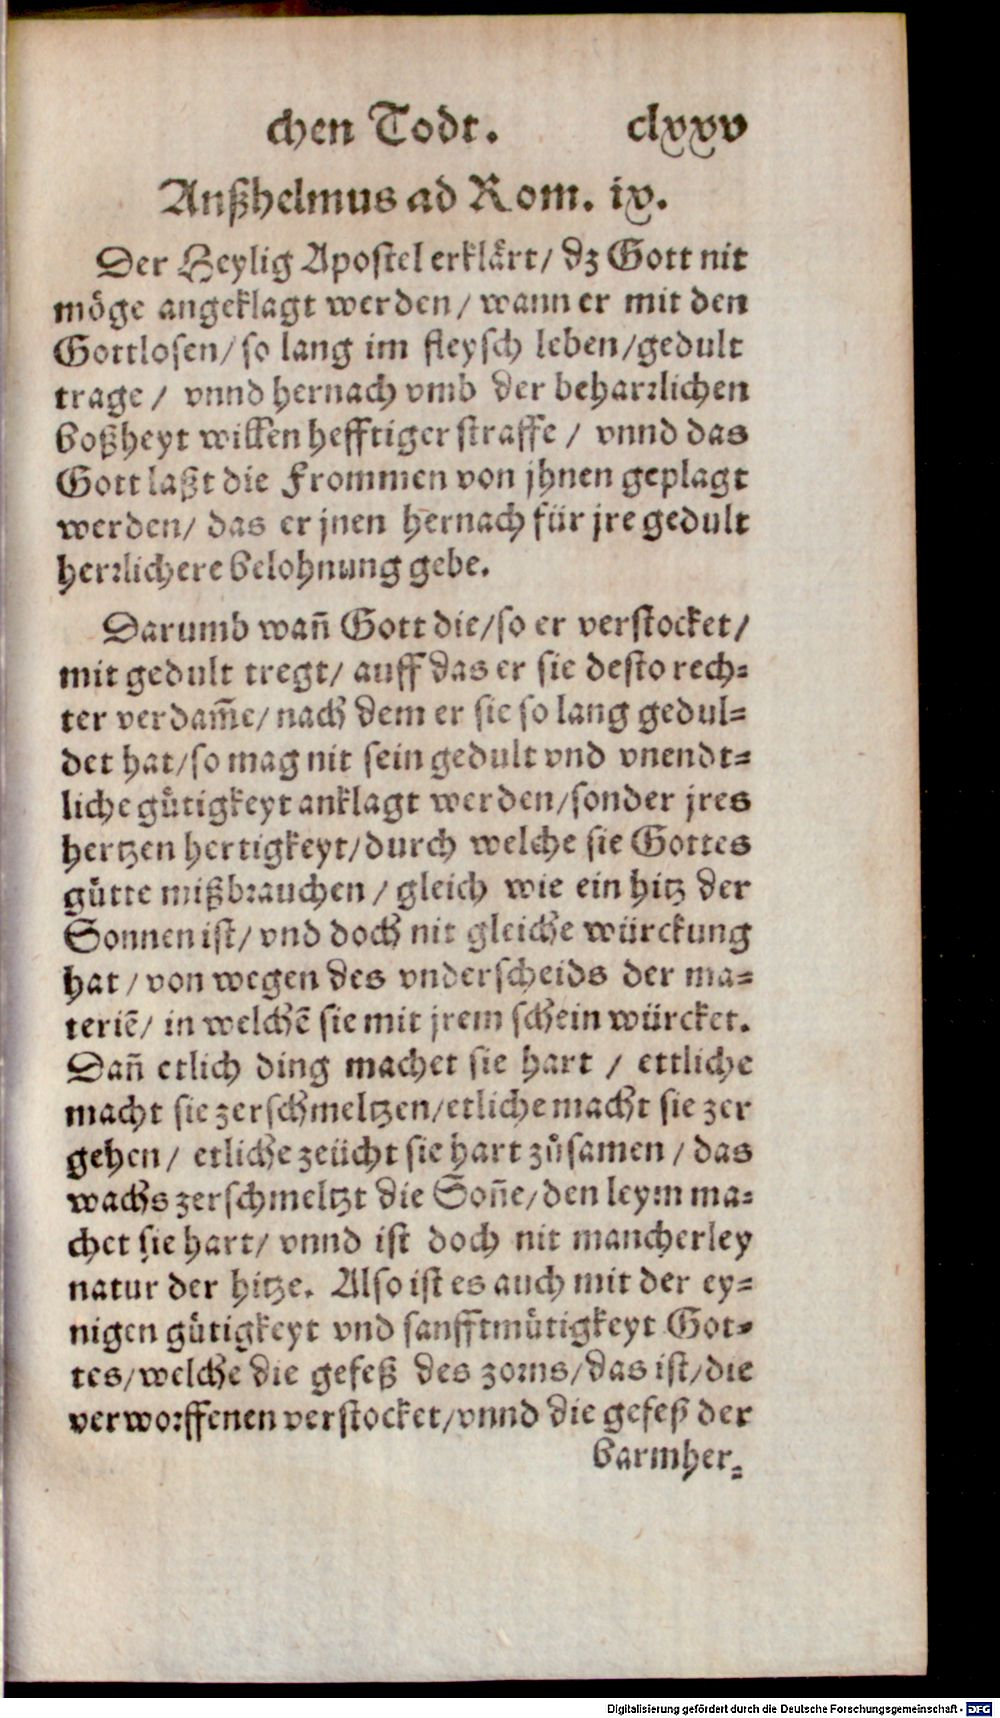 chen Todt. clxxv
Anßhelmus ad Rom. ix.
Der Heylig Apostel erklärt/ dz Gott nit
möge angeklagt werden/ wann er mit den
Gottlosen/ so lang im fleysch leben/ gedult
trage/ vnnd hernach vmb der beharrlichen
boßheyt willen hefftiger straffe/ vnnd das
Gott laßt die Frommen von jhnen geplagt
werden/ das er jnen hernach für jre gedult
herrlichere belohnung gebe.
Darumb wañ Gott die/ so er verstocket/
mit gedult tregt/ auff das er sie desto rech-
ter verdam̃e/ nach dem er sie so lang gedul-
det hat/ so mag nit sein gedult vnd vnendt-
liche gůtigkeyt anklagt werden/ sonder jres
hertzen hertigkeyt/ durch welche sie Gottes
gůtte mißbrauchen/ gleich wie ein hitz der
Sonnen ist/ vnd doch nit gleiche würckung
hat/ von wegen des vnderscheids der ma-
teriē/ in welchē sie mit jrem schein würcket.
Dañ etlich ding machet sie hart/ ettliche
macht sie zerschmeltzen/ etliche macht sie zer
gehen/ etliche zeücht sie hart zůsamen/ das
wachs zerschmeltzt die Soñe/ den leym ma-
chet sie hart/ vnnd ist doch nit mancherley
natur der hitze. Also ist es auch mit der ey-
nigen gůtigkeyt vnd sanfftmůtigkeyt Got-
tes/ welche die gefeß des zorns/ das ist/ die
verworffenen verstocket/ vnnd die gefeß der
barmher-
Digitalisierung gefördert durch die Deutsche Forschungsgemeinschaft - DFG